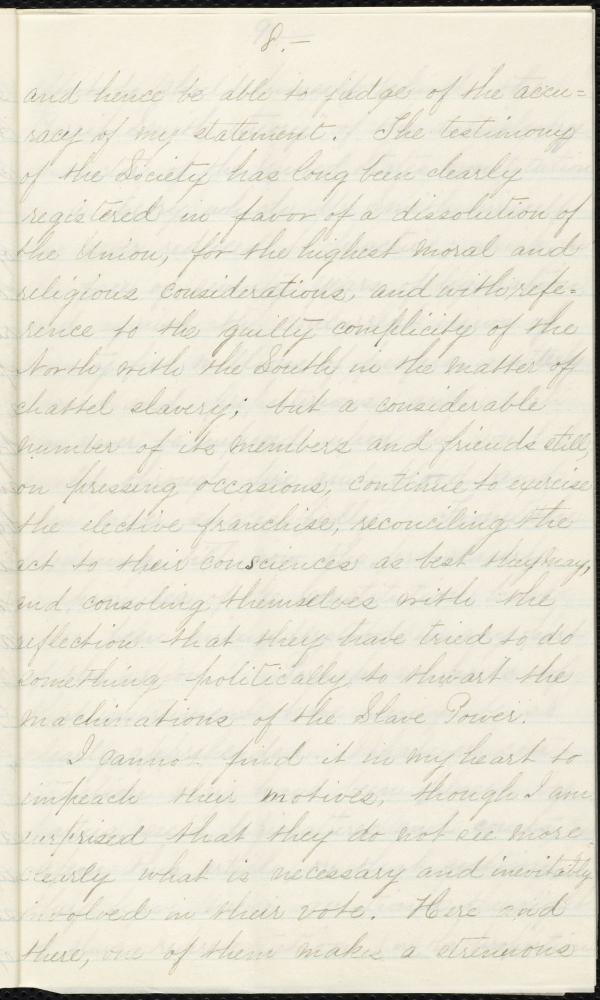 8.—
and hence be able to judge of the accu=
racy of my statement. The testimony
of the Society has long been clearly
registered in favor of a dissolution of
the Union, for the highest moral and
religious considerations, and with refe=
rence to the guilty complicity of the
North with the South in the matter of
chattel slavery; but a considerable
number of its members and friends still,
on pressing occasions, continue to exercise
the elective franchise, reconciling the
act to their consciences as best they may,
and consoling themselves with the
reflection that they have tried to do
something politically to thwart the
machinations of the Slave Power.
I cannot find it in my heart to
impeach their motives, though I am
surprised that they do not see more
clearly what is necessary and inevitably
involved in their vote. Here and
there, one of them makes a strenuous